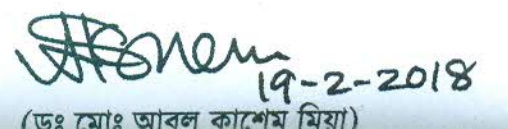 19-2-2018
(ডঃ মোঃ আবুল কাশেম মিয়া)